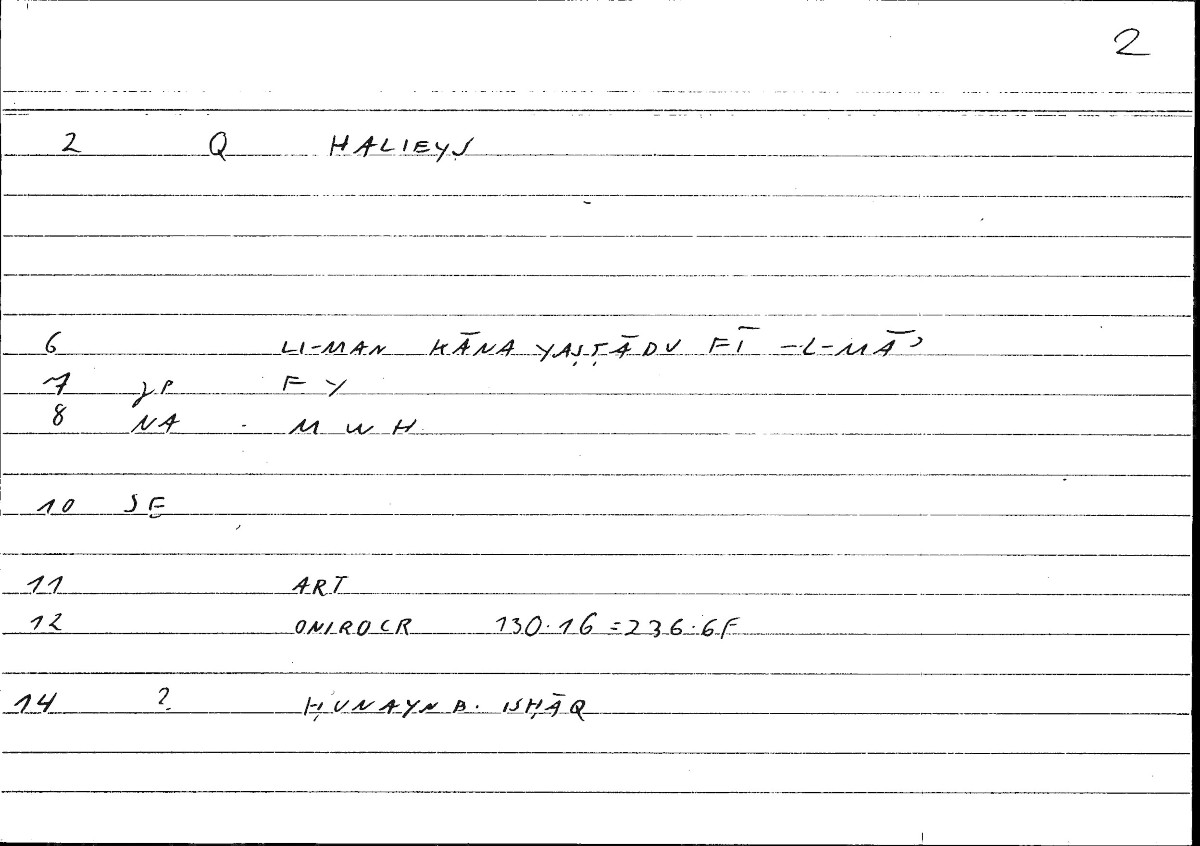 2
2 Q HALIEYS
6 LI-MAN KĀNA YAṢṬĀDU FĪ -L-MĀʾ
7 FY
8 NA M W H
10 SE
11 ART
12 ONIROCR 130.16 = 236.6F
14 ? ḤUNAYN B. ISḤĀQ